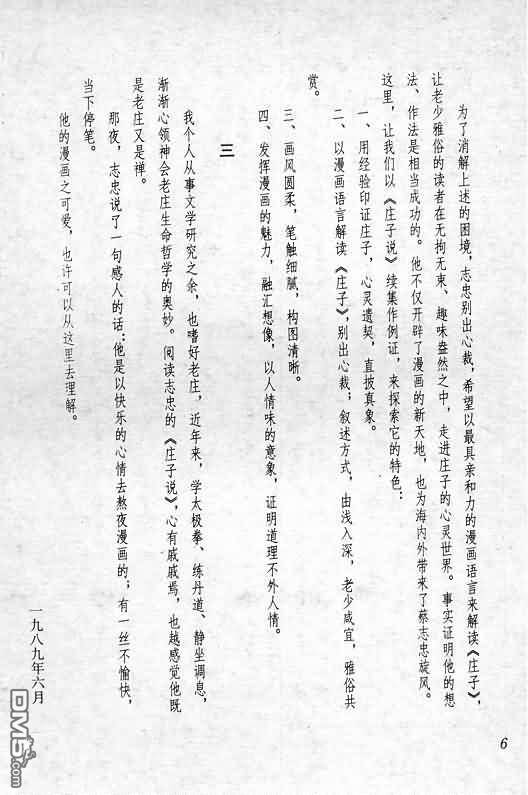 为了消解上述的困境，志忠别出心裁；希望以最具亲和力的漫画语言来解读《庄子》，
让老少雅俗的读者在无拘无束、趣味盎然之中，走进庄子的心灵世界。事实证明他的想
法、作法是相当成功的。他不仅开辟了漫画的新天地，也为海内外带来了蔡志忠旋风。
这里，让我们以《庄子说》续集作例证，来探索它的特色：
一、用经验印证庄子，心灵遗契，直披真象。
二、以漫画语言解读《庄子》，别出心裁；叙述方式，由浅入深，老少咸宜，雅俗共
赏。
三、画风圆柔，笔触细腻，构图清晰。
四、发挥漫画的魅力，融汇想像，以人情味的意象，证明道理不外人情。
三
我个人从事文学研究之余，也嗜好老庄，近年来，学太极拳、练丹道、静坐调息，
渐渐心领神会老庄生命哲学的奥妙。阅读志忠的《庄子说》，心有戚戚焉，也越感觉他既
是老庄又是禅。
那夜，志忠说了一句感人的话：他是以快乐的心情去熬夜漫画的；有一丝不愉快，
当下停笔。
他的漫画之可爱，也许可以从这里去理解。
一九八九年六月
6
DM5.com